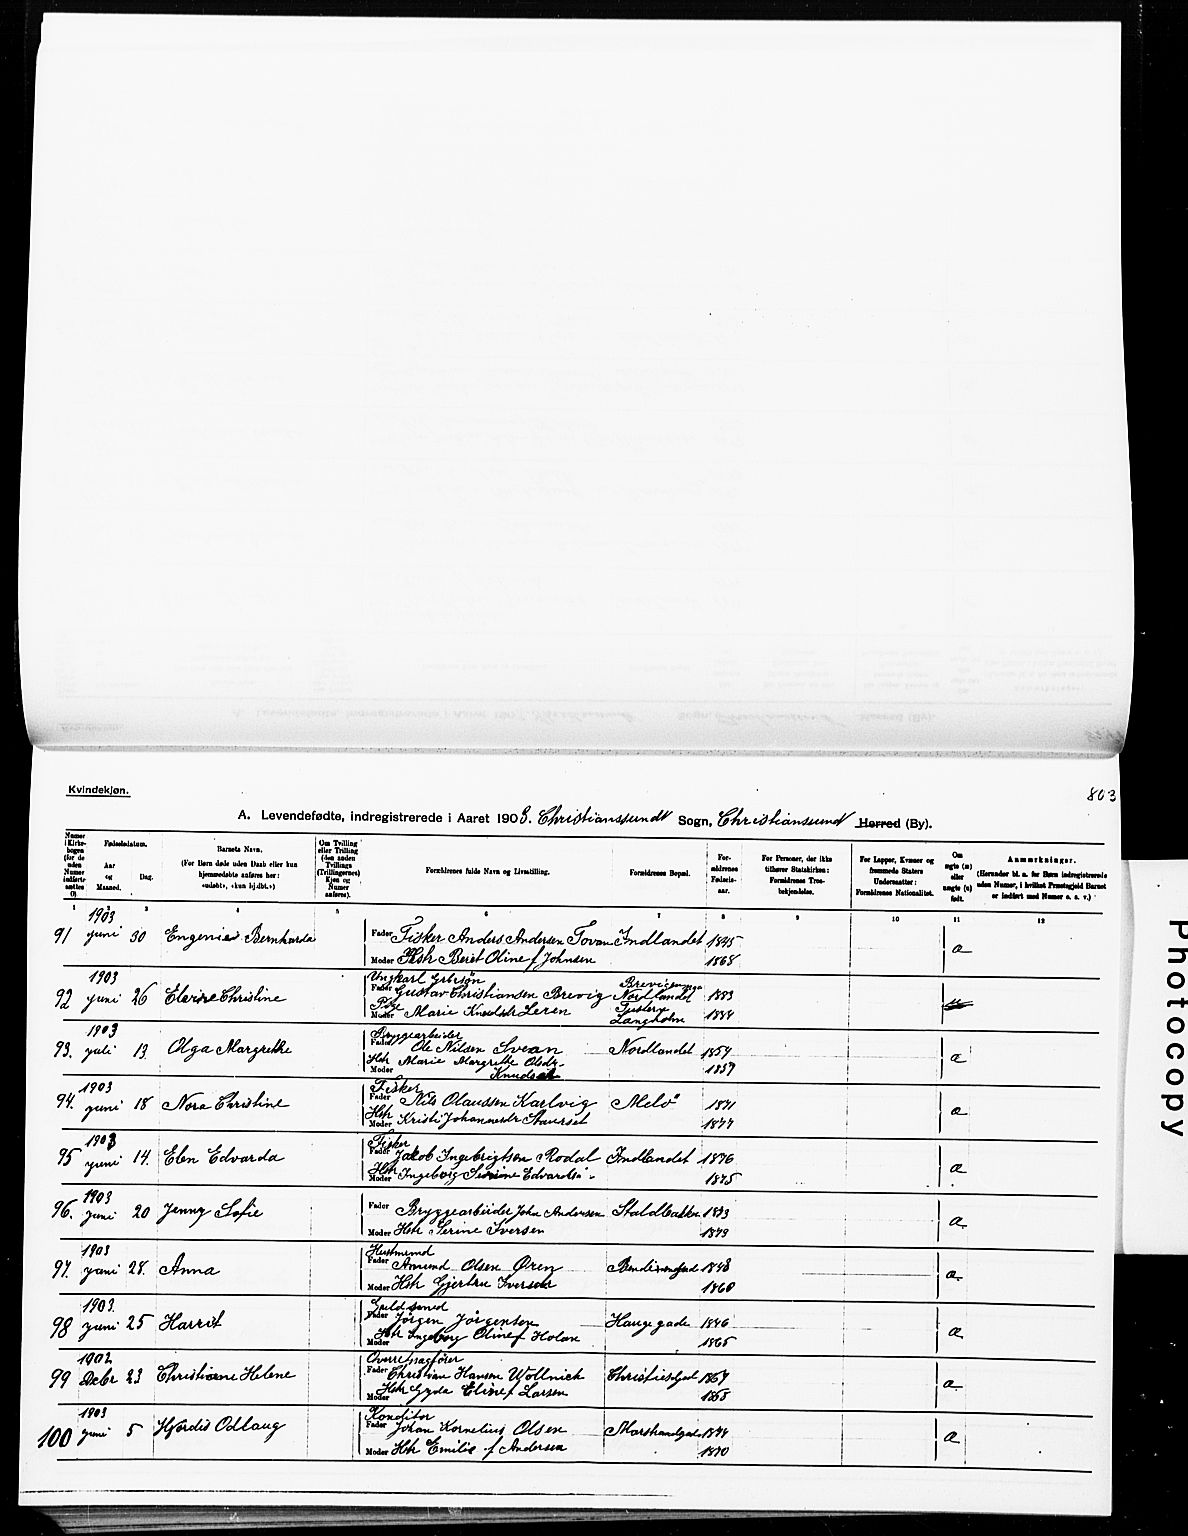 Kvindekjøn.
803
A. Levendefødte, indregistrerede i Aaret 1903. Christianssund Sogn, Christianssund Herred (By).
Numer i Kirkebogen (for de uden Numer indførte sættes 0)
Fødselsdatum.
Aar og Maaned.
Dag.
Barnets Navn.
(For Børn døde uden Daab eller kun hjemmedøbte anføres her: «udøbt», «kun hj.dbt.»)
Om Tvilling eller Trilling (den anden Tvillings (Trillingernes) Kjøn og Numer anføres).
Forældrenes fulde Navn og Livsstilling.
Forældrenes Bopæl.
Forældrenes Fødselsaar.
For Personer, der ikke tilhører Statskirken: Forældrenes Trosbekjendelse.
For Lapper, Kvæner og fremmede Staters Undersaatter: Forældrenes Nationalitet.
Om ægte (æ) eller uægte (u) født.
Anmærkninger.
(Herunder bl. a. for Børn indregistrerede uden Numer, i hvilket Præstegjeld Barnet er indført med Numer o. s. v.)
1 2 3 4 5 6 7 8 9 10 11 12
91 1903 juni 30 Bernharda Fader Fisker Anders Andersen Tovan Indlandet 1845
Moder Hstr Beret Oline f Johnsen 1868
æ
92 1903 juni 26 Christine Ungkarl
Fader Gustav Christiansen Brevig Nordlandet 1883
Pige
Moder Marie Leren Langholm 1884
93. 1903 juli 13 Olga Margrethe Bryggearbeider
Fader Ole Nilsen Svean Nordlandet 1854
Hstr
Moder Marie Margrethe Olsdr. 1857
æ
94. 1903 juni 18 Nora Christine Fisker
Fader Nils Olaussen Karlvig Melø 1871
Hstr
Moder Kristi Johannesdr 1877
æ
95 1903 juni 14. Elen Edvarda Fisker
Fader Jakob Ingebrigtsen Rodal Indlandet 1876
Hstr
Moder Ingeborg 1875
æ
96. 1903 juni 20 Jenny Sofie Fader Bryggearbeider John Andersen Staldbakken 1873
Moder Hstr Serine Iversen 1873
æ
97. 1903 juni 28. Anna Husmand
Fader Amund Olsen Øren 1848
Moder Hstr Gjertru 1860
æ
98 1903. juni 25 Harrit Guldsmed
Fader Jørgen Jørgensen Haugegade 1846
Hstr
Moder Ingeborg Oline f Holan 1865
æ
99 1902 Decbr 23 Helene Overretssagfører
Fader Christian Hansen Wollnick 1867
Moder Hstr Gyda Elise f Larsen 1868
æ
100 1903 juni 5 Hjørdis Odlaug Konditor
Fader Johan Kornelius Olsen
Moder Hstr Emilie f Andersen 1870
æ
Photocopy